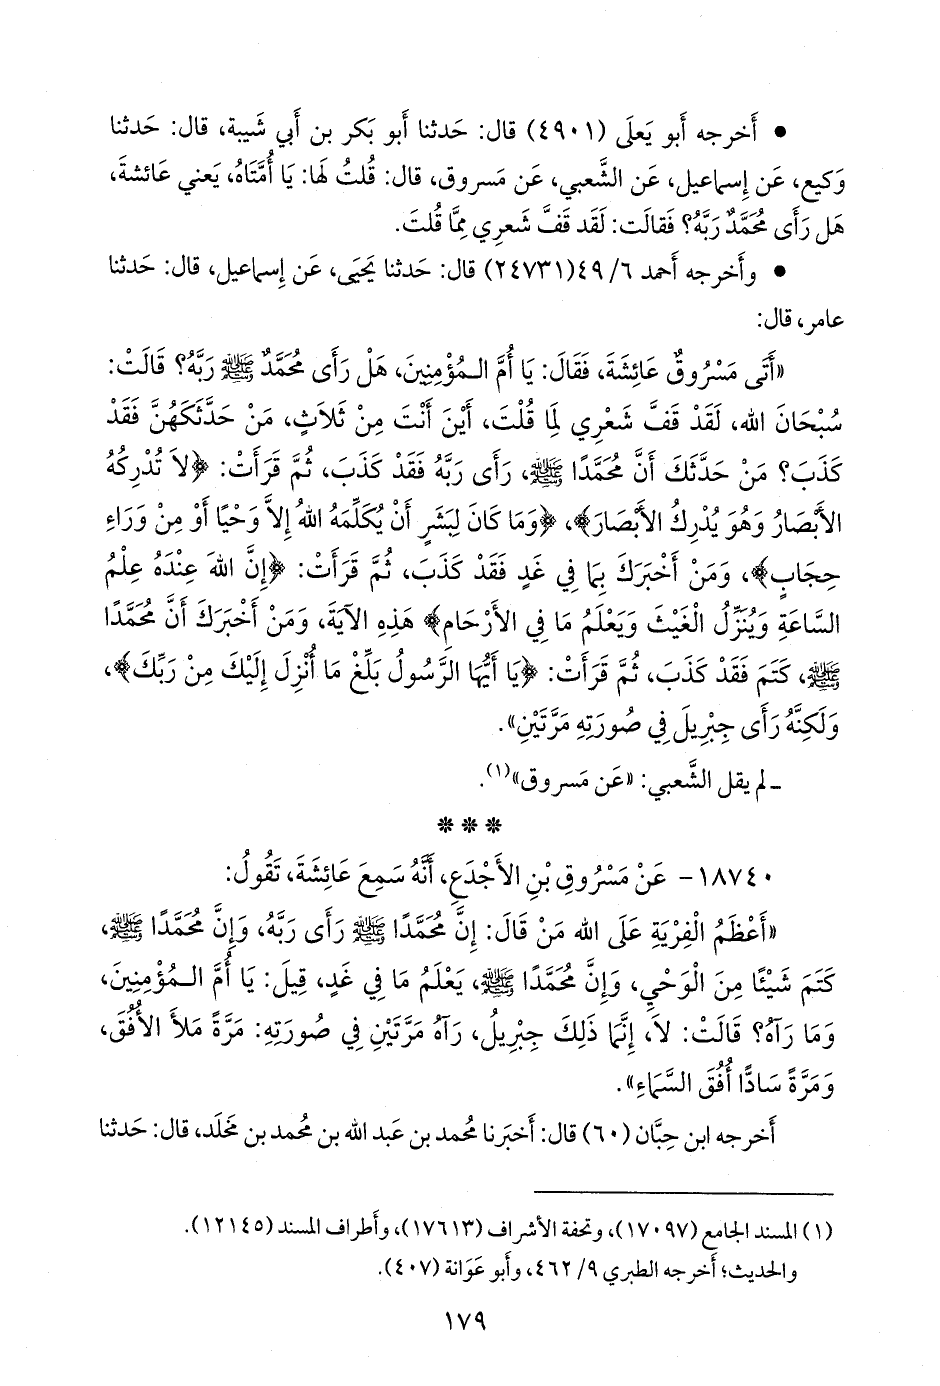 • أَخرجه أَبو يَعلَى (٤٩٠١) قال: حَدثنا أَبو بَكر بن أَبي شَيبة، قال: حَدثنا
وَكيع، عَن إِسماعيل، عَن الشَّعبي، عَن مَسروق، قال: قُلتُ لها: يَا أُمَّتَاهُ، يَعني عَائشةَ،
هَل رَأَى مُحَمَّدٌ رَبَّهُ؟ فَقالَت: لَقَد قَفَّ شَعرِي مِمَّا قُلتَ.
• وأَخرجه أَحمد ٦/ ٤٩(٢٤٧٣١) قال: حَدثنا يَحيَى، عَن إِسماعيل، قال: حَدثنا
عامر، قال:
«أَتَى مَسْرُوقٌ عَائِشَةَ، فَقَالَ: يَا أُمَّ الـمُؤْمِنِينَ، هَلْ رَأَى مُحَمَّدٌ ﷺ رَبَّهُ؟ قَالَتْ:
سُبْحَانَ الله، لَقَدْ قَفَّ شَعْرِي لِمَا قُلْتَ، أَيْنَ أَنْتَ مِنْ ثَلاَثٍ، مَنْ حَدَّثَكَهُنَّ فَقَدْ
كَذَبَ؟ مَنْ حَدَّثَكَ أَنَّ مُحَمَّدًا ﷺ، رَأَى رَبَّهُ فَقَدْ كَذَبَ، ثُمَّ قَرَأَتْ: ﴿لاَ تُدْرِكُهُ
الأَبْصَارُ وَهُوَ يُدْرِكُ الأَبْصَارَ﴾، ﴿وَمَا كَانَ لِبَشَرٍ أَنْ يُكَلِّمَهُ اللهُ إِلاَّ وَحْيًا أَوْ مِنْ وَرَاءِ
حِجَابٍ﴾، وَمَنْ أَخْبَرَكَ بِمَا فِي غَدٍ فَقَدْ كَذَبَ، ثُمَّ قَرَأَتْ: ﴿إِنَّ اللهَ عِنْدَهُ عِلْمُ
السَّاعَةِ وَيُنَزِّلُ الْغَيْثَ وَيَعْلَمُ مَا فِي الأَرْحَامِ﴾ هَذِهِ الآيَةَ، وَمَنْ أَخْبَرَكَ أَنَّ مُحَمَّدًا
ﷺ، كَتَمَ فَقَدْ كَذَبَ، ثُمَّ قَرَأَتْ: ﴿يَا أَيُّهَا الرَّسُولُ بَلِّغْ مَا أُنْزِلَ إِلَيْكَ مِنْ رَبِّكَ﴾،
وَلَكِنَّهُ رَأَى جِبْرِيلَ فِي صُورَتِهِ مَرَّتَيْنِ».
ـ لم يقل الشَّعبي: «عَن مَسروق»(١).
* * *
١٨٧٤٠- عَنْ مَسْرُوقِ بْنِ الأَجْدَعِ، أَنَّهُ سَمِعَ عَائِشَةَ، تَقُولُ:
«أَعْظَمُ الْفِرْيَةِ عَلَى الله مَنْ قَالَ: إِنَّ مُحَمَّدًا ﷺ رَأَى رَبَّهُ، وَإِنَّ مُحَمَّدًا ﷺ،
كَتَمَ شَيْئًا مِنَ الْوَحْيِ، وَإِنَّ مُحَمَّدًا ﷺ، يَعْلَمُ مَا فِي غَدٍ، قِيلَ: يَا أُمَّ الـمُؤْمِنِينَ،
وَمَا رَآهُ؟ قَالَتْ: لاَ، إِنَّمَا ذَلِكَ جِبْرِيلُ، رَآهُ مَرَّتَيْنِ فِي صُورَتِهِ: مَرَّةً مَلأَ الأُفُقَ،
وَمَرَّةً سَادًّا أُفُقَ السَّمَاءِ».
أَخرجه ابن حِبَّان (٦٠) قال: أَخبَرنا مُحمد بن عَبد الله بن مُحمد بن مَخلَد، قال: حَدثنا
(١) المسند الجامع (١٧٠٩٧)، وتحفة الأشراف (١٧٦١٣)، وأَطراف المسند (١٢١٤٥).
والحديث؛ أخرجه الطبري ٩/ ٤٦٢، وأَبو عَوَانة (٤٠٧).
١٧٩